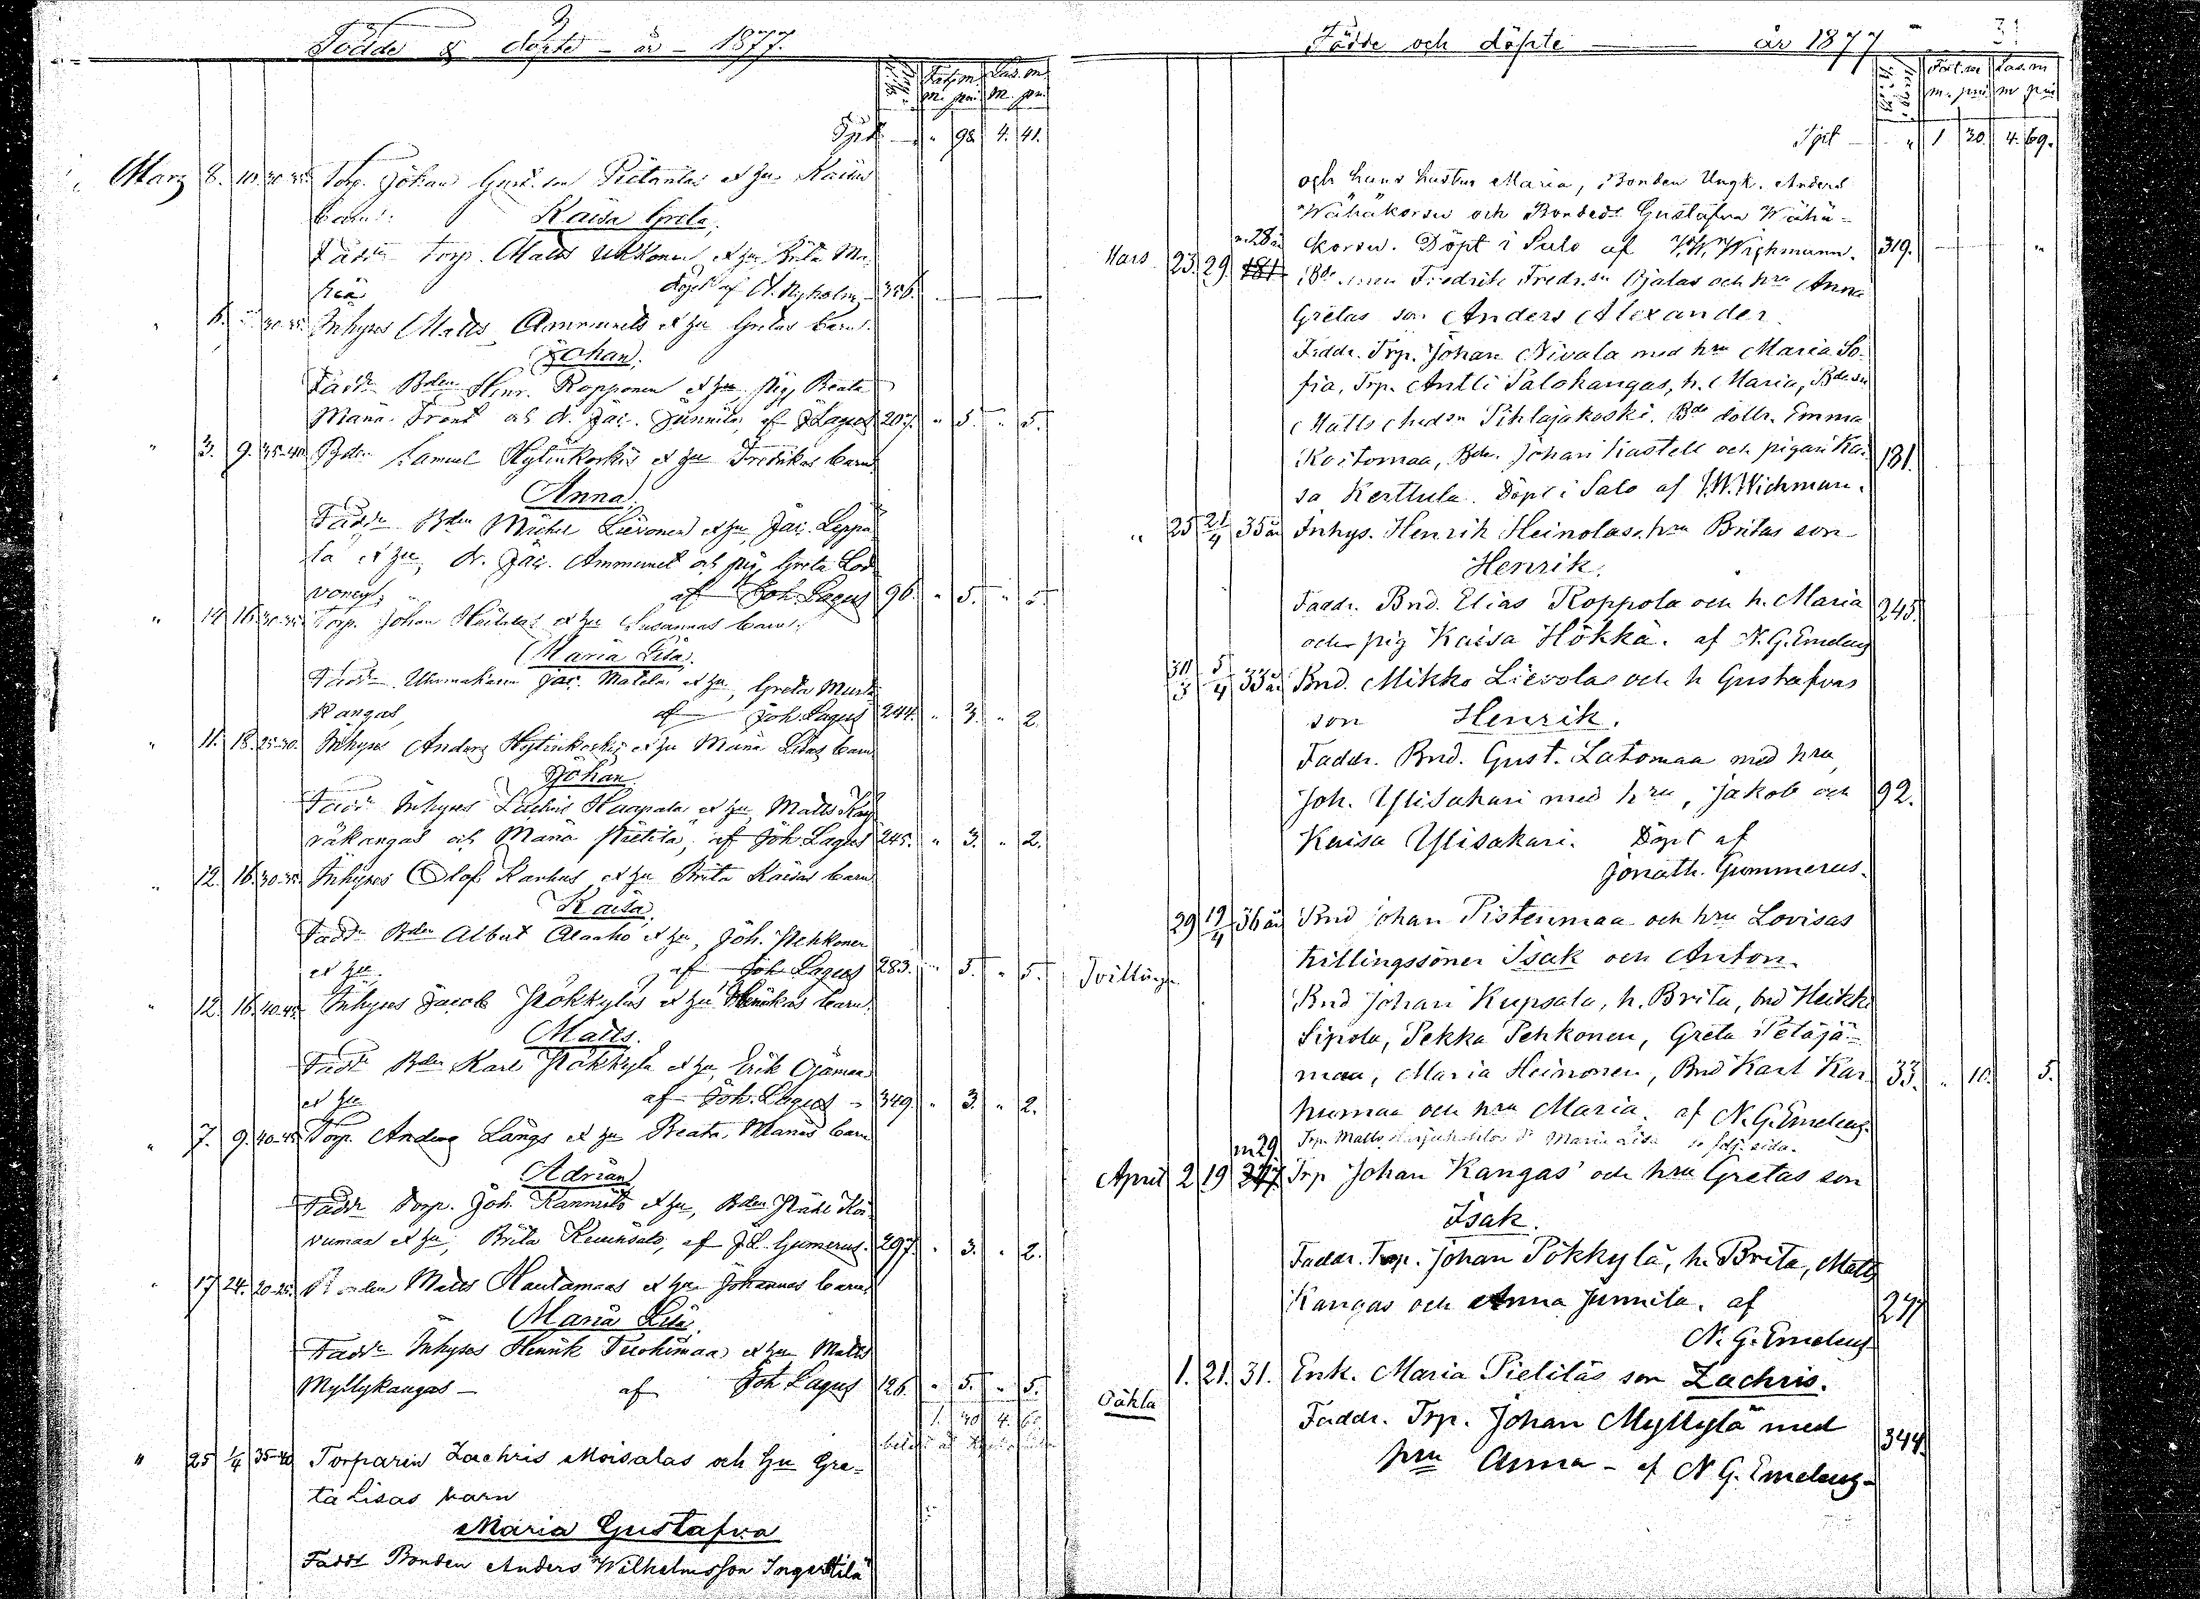 Födde & döpte - år - 1877.
Fatt.m. Las.m
m. pni M. pni
Tprt — " 98. 4. 41.
Mars 8. 10. 30-35. Torp. Johan Gust. son Pietiläs et hu Kaisas
barn: Kaisa Greta,
Faddr. Torp. Matts Ukkonen et hu Brita Ma-
ria Döpt af A. Nyholm 356.
" 30-35. Inhyses Matts Ammunets et hu Gretas barn:
Johan.
Faddr Bden Hinr. Ropponen et hu pig. Beata
Maria Frant och dr. Jac. Junnila, af J Lagus 207. " 5. " 5.
" 3. 9. 35-40. Bden Samuel Hylinkoskis et hu Fredrikas barn
Anna,
Faddr Bden Michel Lievonen et hu Jac. Leppä-
lä et hu, dr. Jac. Ammunet och pig Greta Lie-
vonen, af Joh. Lagus 96. " 5. " 5.
" 14 16. 30-35. Torp. Johan Heitalas et hu Susannas barn:
Maria Lisa.
Faddr. Uhrmakaren Jac. Matila et hu, Greta Musta
Kangas, af Joh. Lagus 244. " 3. " 2.
" 11. 18. 25-30. Inhyses Anders Hylinkoskis et hu Maria Lisas barn
Johan
Faddr Inhyses Zachris Haapala et hu, Matts Kar-
väkangas och Maria Pietilä, af Joh. Lagus 245. " 3. " 2.
" 12. 16. 30-35. Inhyses Olof Karhus et hu Brita Kaisas barn
Kaisa,
Faddr Bden Albert Alaaho et hu, Joh. Pehkonen
et hu. af Joh. Lagus 283. " 5. " 5.
" 12. 16. 40-45. Inhyses Jacob Pökkyläs et hu Henrikas barn:
Matts.
Faddr Bden Karl Pökkylä et hu, Erik Ojamaa
et hu af Joh. Lagus 349. " 3. " 2.
" 7. 9. 40-45. Torp. Anders Långs et hu Beata Marias barn
Adrian
Faddr Torp. Joh. Kannisto et hu, Bden Pähl Koi-
vumaa et hu, Brita Keuinsalo, af J.L. Gumerus. 297. " 3. " 2.
" 17 24. 20-25. Bonden Matts Hautamaas et hu Johannas barn:
Maria Lisa,
Faddr Inhyses Henrik Tuohimaa et hu Matts
Myllykangas — af Joh Lagus 126. " 5. " 5.
1. 30 4.
" 25 1/4 35-40 Torparen Zachris Moisalas och hu Gre-
ta Lisas barn
Maria Gustafva
Faddr Bonden Anders Wilhelmsson Ingerttilä
Födde och döpte — år 1877 31
Fatt.m Las.m
m. pni m pni
Tprt — " 1 30. 4. 69.
och hans hustru Maria, Bonden Ungk. Anders
Wähäkorsu och Bondedr. Gustafva Wähä-
korsu. Döpt i Salo af J.W. Wichmann. 319. — "
Mars 23. 29. 181 m 28 år Bdesonen Fredrik Fredr.sn Ojalas och hru Anna
Gretas son Anders Alexander.
Faddr. Trp. Johan Nivala med hru Maria So-
fia, Trp. Antti Palokangas, h. Maria, Bdesn
Matts Matsn Pihlajakoski. Bde dottr. Emma
Koitomaa, Bde. Johan Kastell och pigan Kai-
sa Kerttula. Döpt i Salo af J.W. Wichman. 181.
" 25 21/4 35 år Inhys. Henrik Heinolas o. hru Britas son
Henrik.
Faddr. Bnd. Elias Roppola och h. Maria 245.
och pig Kaisa Hökkä. af N. G. Emeleus
30/3 5/4 33 år Bnd. Mikko Lievolas och h Gustafvas
son Henrik.
Faddr. Bnd. Gust. Latomaa med hru,
Joh. Ylisakari med hru, Jakob och 92.
Kaisa Ylisakari. Döpt af
Jonath. Gummerus.
29 19/4 36 år Bnd Johan Pistenmaa och hru Lovisas
Tvillingar tvillingssöner Isak och Anton.
Bnd Johan Kupsala, h. Brita, bnd Heikki
Sipola, Pekka Pehkonen, Greta Petäjä-
maa, Maria Heinonen, Bnd Karl Kar- 33. " 10. 5.
humaa och hru Maria. af N. G. Emeleus.
Trp. Matts Maria Lisa se följ. sida.
April 2 19 247 m 29 Trp Johan Kangas' och hru Gretas son
Isak.
Faddr. Trp. Johan Pökkylä, h. Brita, Matts
Kangas och Anna Junnila. af 247
N. G. Emeleus
Oäkta 1. 21. 31. Enk. Maria Pietiläs son Zachris.
Faddr. Trp. Johan Myllylä med 344.
hru Anna - af N G. Emeleus-